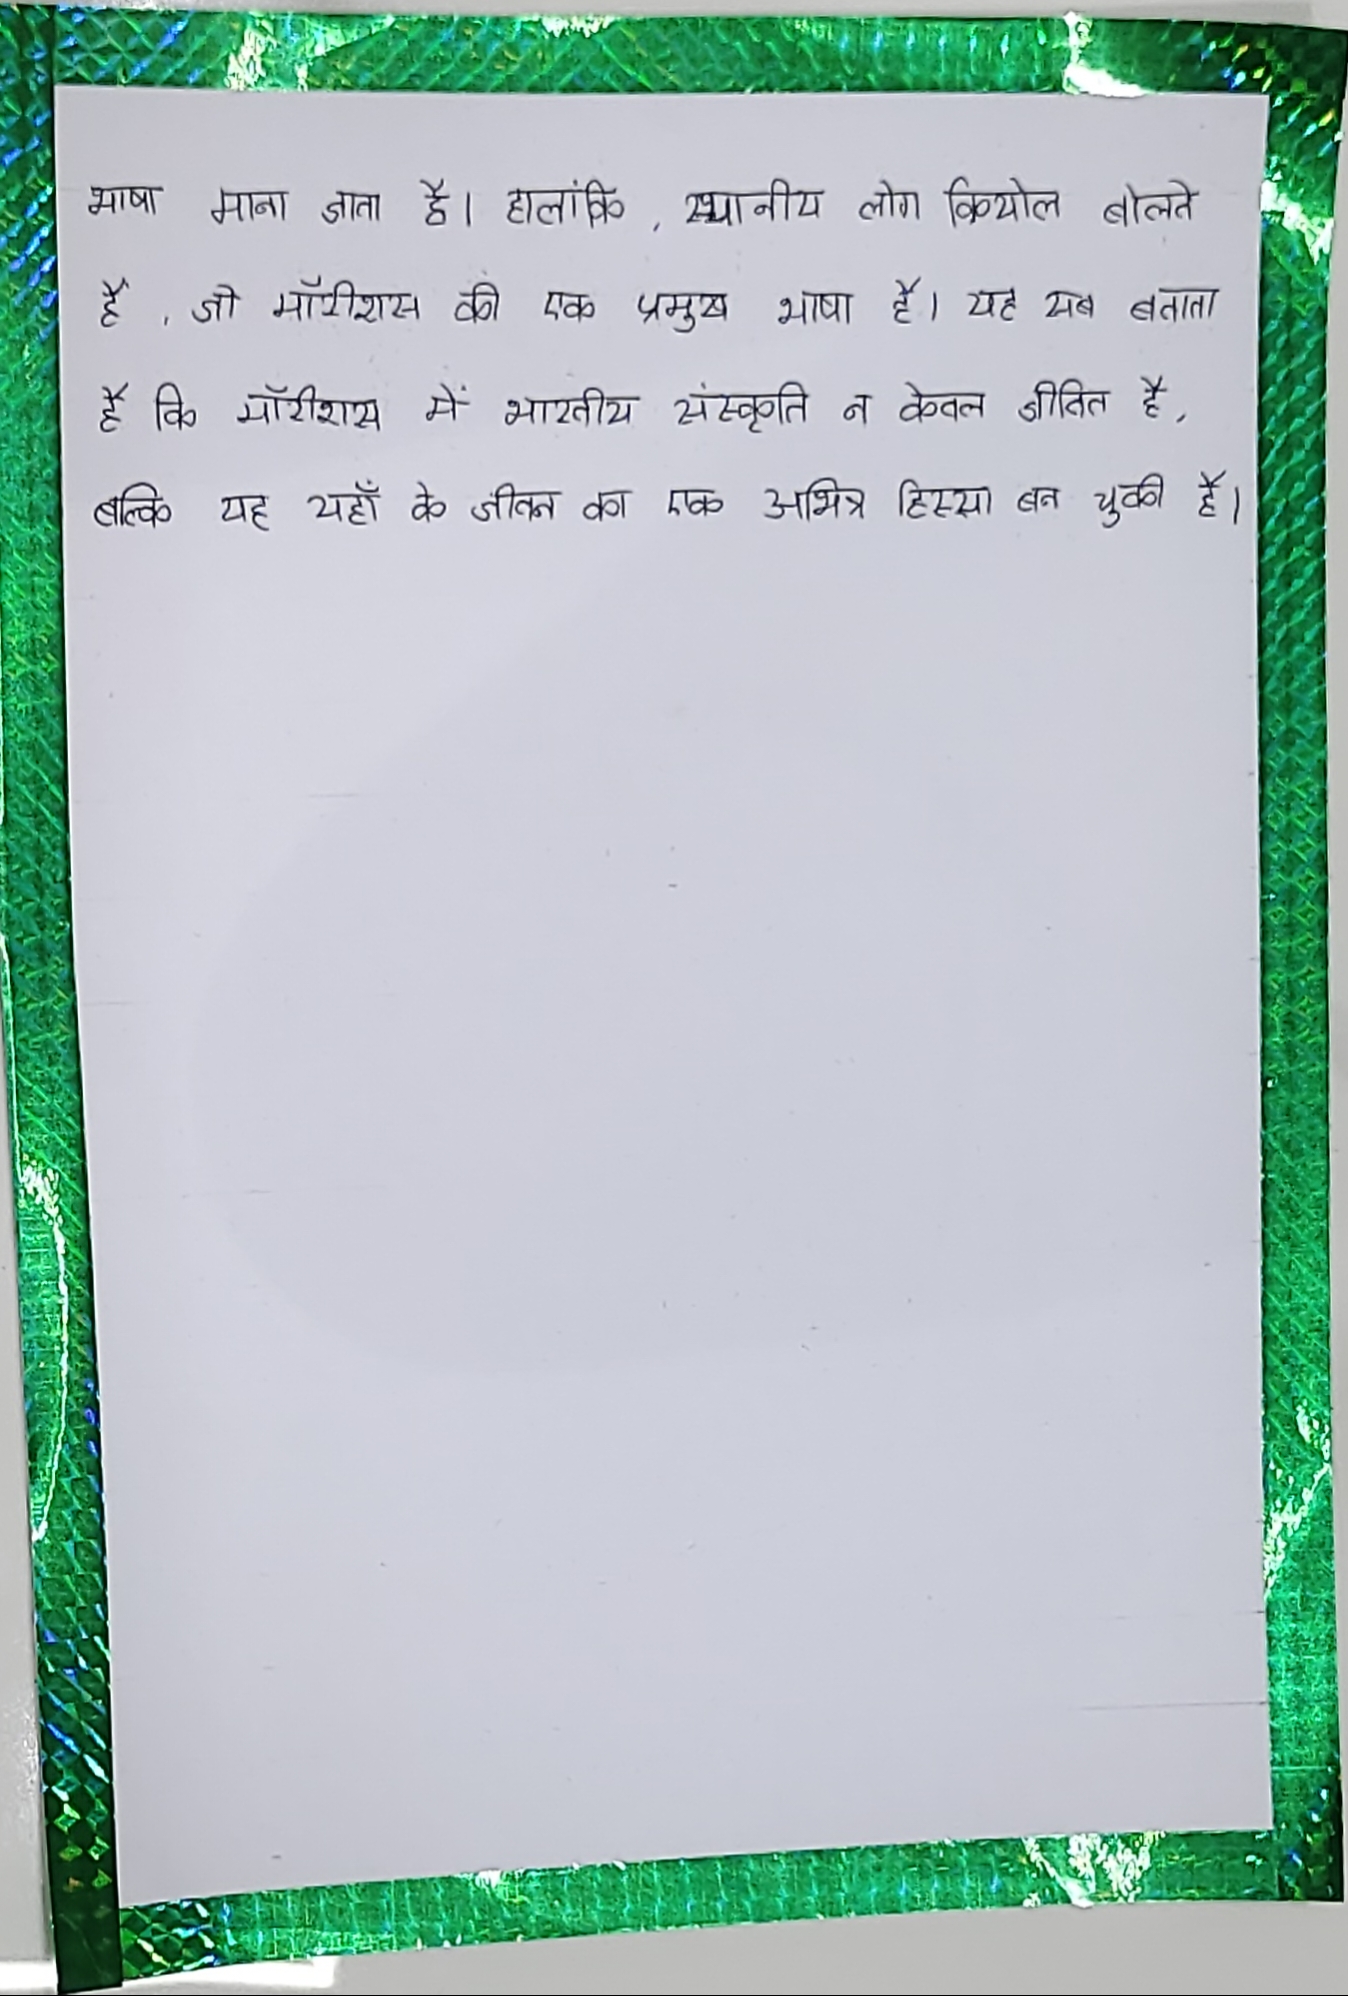 भाषा माना जाता है। हालांकि, स्थानीय लोग कियोल बोलते
हैं, जो मॉरीशस की एक प्रमुख भाषा है। यह सब बताता
है कि मॉरीशस में भारतीय संस्कृति न केवल जीवित है,
बल्कि यह यहाँ के जीवन का एक अभिन्न हिस्सा बन चुकी है।